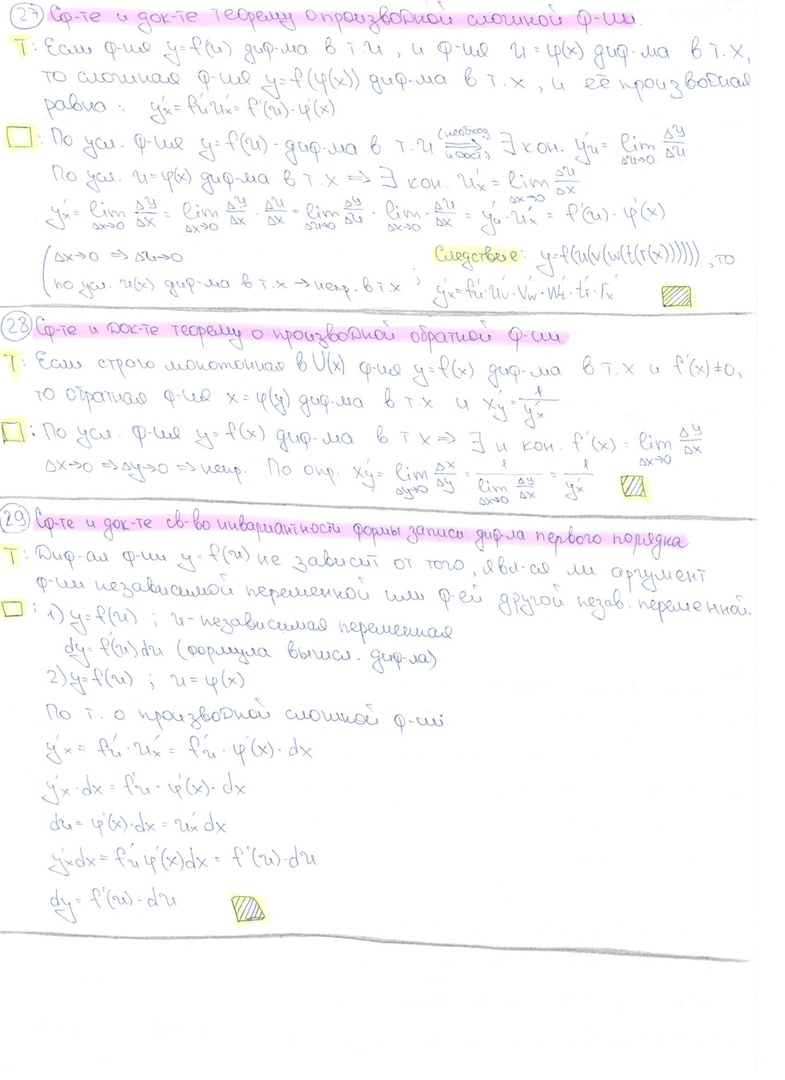 27 Сф-те и док-те теорему о производной сложной ф-ии.
Т: Если ф-ия y=f(u) диф-ма в т.u, и ф-ия u=φ(x) диф-ма в т.x,
то сложная ф-ия y=f(φ(x)) диф-ма в т.x, и её производная
равна: y'x=f'u·u'x=f'(u)·φ'(x)
: По усл. ф-ия y=f(u) - диф-ма в т.u (необход и дост) ⟹ ∃ кон. y'u= lim Δu→0 Δy/Δu
По усл. u=φ(x) диф-ма в т.x ⟹ ∃ кон. u'x= lim Δx→0 Δu/Δx
y'x= lim Δx→0 Δy/Δx = lim Δx→0 Δy/Δu · Δu/Δx = lim Δu→0 Δy/Δu · lim Δx→0 Δu/Δx = y'u·u'x = f'(u)·φ'(x)
(Δx→0 ⟹ Δu→0
по усл. u(x) диф-ма в т.x → непр. в т.x ;
Следствие: y=f(u(v(w(t(r(x)))))), то
y'x=f'u·u'v·v'w·w't·t'r·r'x
28 Сф-те и док-те теорему о производной обратной ф-ии
Т: Если строго монотонная в U(x) ф-ия y=f(x) диф-ма в т.x и f'(x)≠0,
то обратная ф-ия x=φ(y) диф-ма в т.x и x'y=1/y'x
: По усл. ф-ия y=f(x) диф-ма в т x ⟹ ∃ и кон. f'(x)= lim Δx→0 Δy/Δx
Δx→0 ⟹ Δy→0 ⟹ непр. По опр. x'y= lim Δy→0 Δx/Δy = 1/(lim Δx→0 Δy/Δx) = 1/y'x
29 Сф-те и док-те св-во инвариантности формы записи диф-ла первого порядка
Т: Диф-ал ф-ии y=f(u) не зависит от того, явл-ся ли аргумент
ф-ии независимой переменной или ф-ей другой незав. переменной.
: 1) y=f(u) ; u-независимая переменная
dy=f'(u)du (формула вычисл. диф-ла)
2) y=f(u) ; u=φ(x)
По т. о производной сложной ф-ии
y'x = f'u·u'x = f'u·φ'(x)·dx
y'x·dx = f'u·φ'(x)·dx
du=φ'(x)·dx = u'x dx
y'x dx = f'u φ'(x)dx = f'(u)·du
dy=f'(u)·du